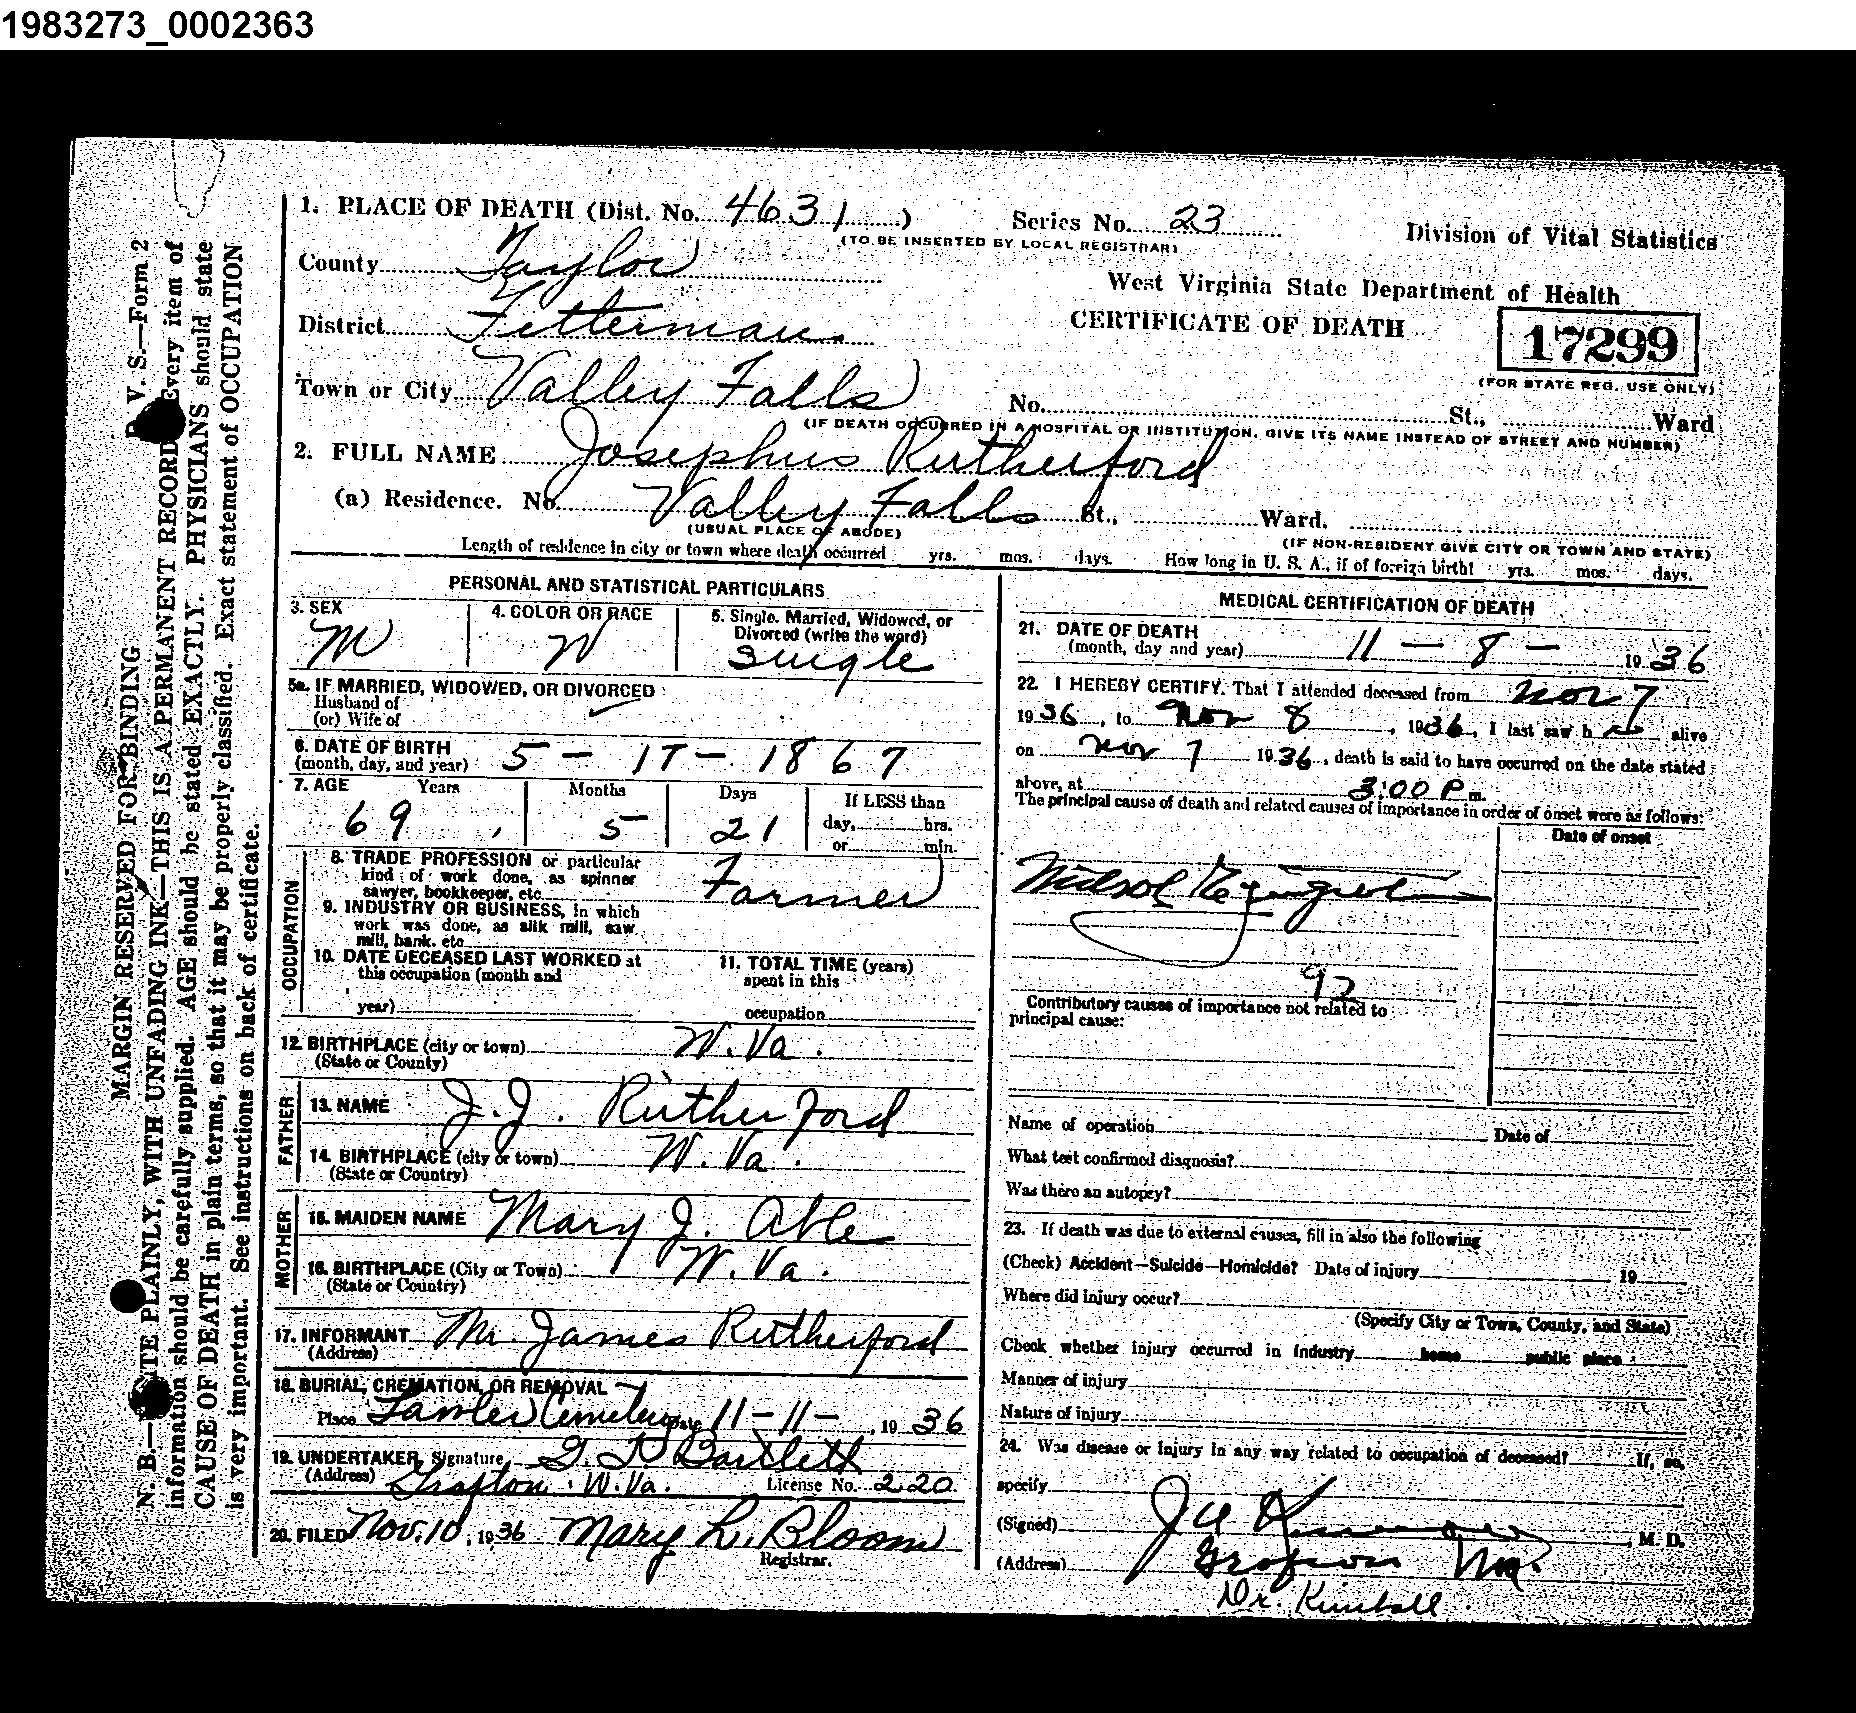 1983273_0002363
1. PLACE OF DEATH (Dist. No. 4631)
Series No. 23
(TO BE INSERTED BY LOCAL REGISTRAR)
Division of Vital Statistics
County Taylor
West Virginia State Department of Health
District Fetterman
CERTIFICATE OF DEATH
17299
(FOR STATE REG. USE ONLY)
Town or City Valley Falls
No. St., Ward
(IF DEATH OCCURRED IN A HOSPITAL OR INSTITUTION, GIVE ITS NAME INSTEAD OF STREET AND NUMBER)
2. FULL NAME Josephus Rutherford
(a) Residence. No. Valley Falls St., Ward.
(USUAL PLACE OF ABODE)
(IF NON-RESIDENT GIVE CITY OR TOWN AND STATE)
Length of residence in city or town where death occurred yrs. mos. days. How long in U. S. A., if of foreign birth? yrs. mos. days.
PERSONAL AND STATISTICAL PARTICULARS
3. SEX
M
4. COLOR OR RACE
W
5. Single, Married, Widowed, or
Divorced (write the word)
Single
5a. IF MARRIED, WIDOWED, OR DIVORCED
Husband of
(or) Wife of
6. DATE OF BIRTH
(month, day, and year) 5 - 17 - 1867
7. AGE Years Months Days
69 5 21
If LESS than
day, hrs.
or min.
OCCUPATION
8. TRADE PROFESSION or particular
kind of work done, as spinner
sawyer, bookkeeper, etc. Farmer
9. INDUSTRY OR BUSINESS, in which
work was done, as silk mill, saw
mill, bank, etc
10. DATE DECEASED LAST WORKED at
this occupation (month and
year)
11. TOTAL TIME (years)
spent in this
occupation
12. BIRTHPLACE (city or town) W. Va.
(State or County)
FATHER
13. NAME J. J. Rutherford
14. BIRTHPLACE (city or town) W. Va.
(State or Country)
MOTHER
15. MAIDEN NAME Mary J. Able
16. BIRTHPLACE (City or Town) W. Va.
(State or Country)
17. INFORMANT Mr. James Rutherford
(Address)
18. BURIAL, CREMATION, OR REMOVAL
Place Cemetery Date 11-11-, 1936
19. UNDERTAKER, Signature Bartlett
(Address) Grafton W. Va. License No. 220
20. FILED Nov. 10, 1936 Mary L. Bloom
Registrar.
MEDICAL CERTIFICATION OF DEATH
21. DATE OF DEATH
(month, day and year) 11 - 8 - 1936
22. I HEREBY CERTIFY, That I attended deceased from Nov 7
1936, to Nov 8, 1936, I last saw h alive
on Nov 7 1936, death is said to have occurred on the date stated
above, at 3:00 P m.
The principal cause of death and related causes of importance in order of onset were as follows:
Date of onset
92
Contributory causes of importance not related to
principal cause:
Name of operation Date of
What test confirmed diagnosis?
Was there an autopsy?
23. If death was due to external causes, fill in also the following
(Check) Accident—Suicide—Homicide? Date of injury 19
Where did injury occur?
(Specify City or Town, County, and State)
Check whether injury occurred in industry home public place
Manner of injury
Nature of injury
24. Was disease or injury in any way related to occupation of deceased? If so,
specify
(Signed) , M. D.
(Address) Grafton
Dr. Kimball
V. S.—Form 2
MARGIN RESERVED FOR BINDING
N. B.— PLAINLY, WITH UNFADING INK—THIS IS A PERMANENT RECORD Every item of
information should be carefully supplied. AGE should be stated EXACTLY. PHYSICIANS should state
CAUSE OF DEATH in plain terms, so that it may be properly classified. Exact statement of OCCUPATION
is very important. See instructions on back of certificate.